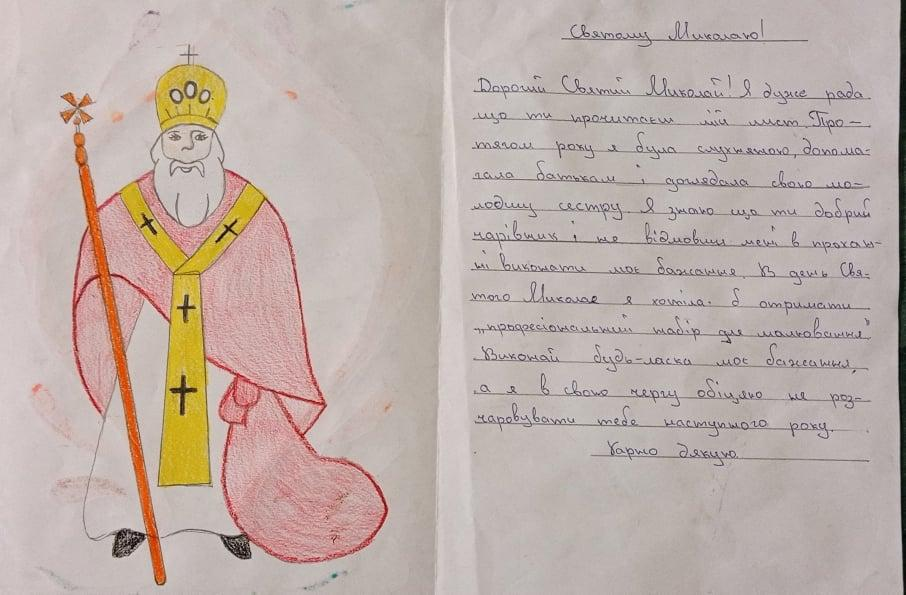 Святому Миколаю!
Дорогий Святий Миколай! Я дуже рада
що ти прочитаєш мій лист. Про-
тягом року я була слухняною, допома-
гала батькам і доглядала свою мо-
лодшу сестру. Я знаю що ти добрий
чарівник і не відмовиш мені в прохан-
ні виконати моє бажання. В день Свя-
того Миколая я хотіла б отримати
„професіональний набір для малювання"
Виконай будь-ласка моє бажання,
а я в свою чергу обіцяю не роз-
чаровувати тебе наступного року.
Гарно дякую.